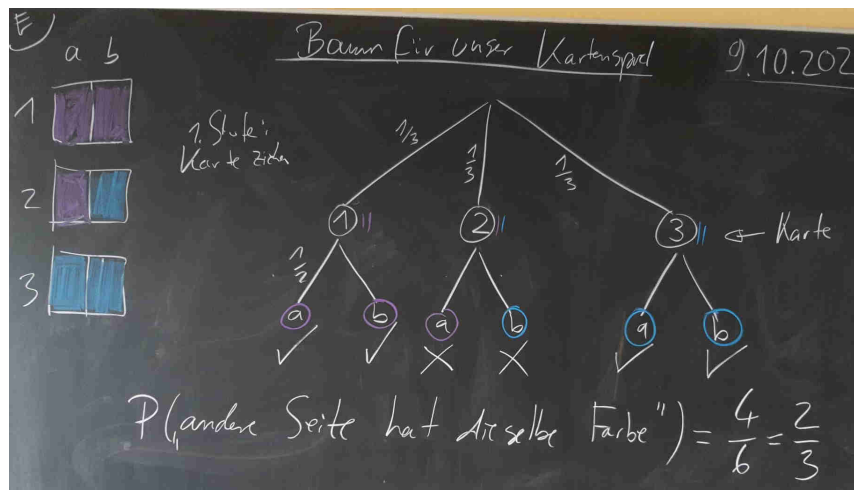 E
Baum für unser Kartenspiel
9.10.202
a b
1
2
3
1. Stufe:
Karte ziehen
1/3
1/3
1/3
1 2 3 ← Karte
1/2
a b a b a b
✓ ✓ × × ✓ ✓
P(„andere Seite hat dieselbe Farbe") = 4/6 = 2/3